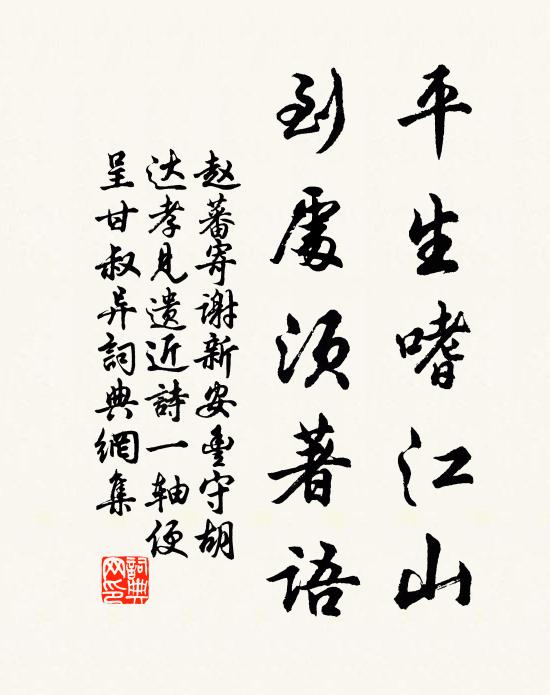 平生嗜江山
到處須著語
赵蕃寄谢新安丰守胡
达孝见遗近詩一轴便
呈甘叔异詞典網集
詞典网印